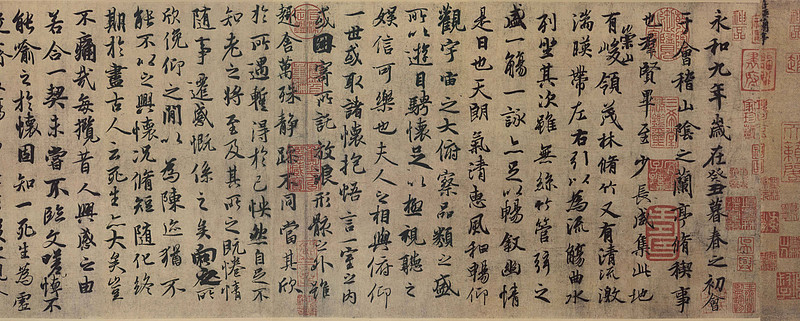 永和九年歲在癸丑暮春之初會
于會稽山陰之蘭亭脩稧事
也羣賢畢至少長咸集此地
有崇山峻領茂林脩竹又有清流激
湍暎帶左右引以為流觴曲水
列坐其次雖無絲竹管弦之
盛一觴一詠亦足以暢敘幽情
是日也天朗氣清惠風和暢仰
觀宇宙之大俯察品類之盛
所以遊目騁懷足以極視聽之
娛信可樂也夫人之相與俯仰
一世或取諸懷抱悟言一室之內
或因寄所託放浪形骸之外雖
趣舍萬殊靜躁不同當其欣
於所遇蹔得於己怏然自足不
知老之將至及其所之既惓情
隨事遷感慨係之矣向之所
欣俛仰之閒以為陳迹猶不
能不以之興懷況脩短隨化終
期於盡古人云死生亦大矣豈
不痛哉每攬昔人興感之由
若合一契未嘗不臨文嗟悼不
能喻之於懷固知一死生為虛